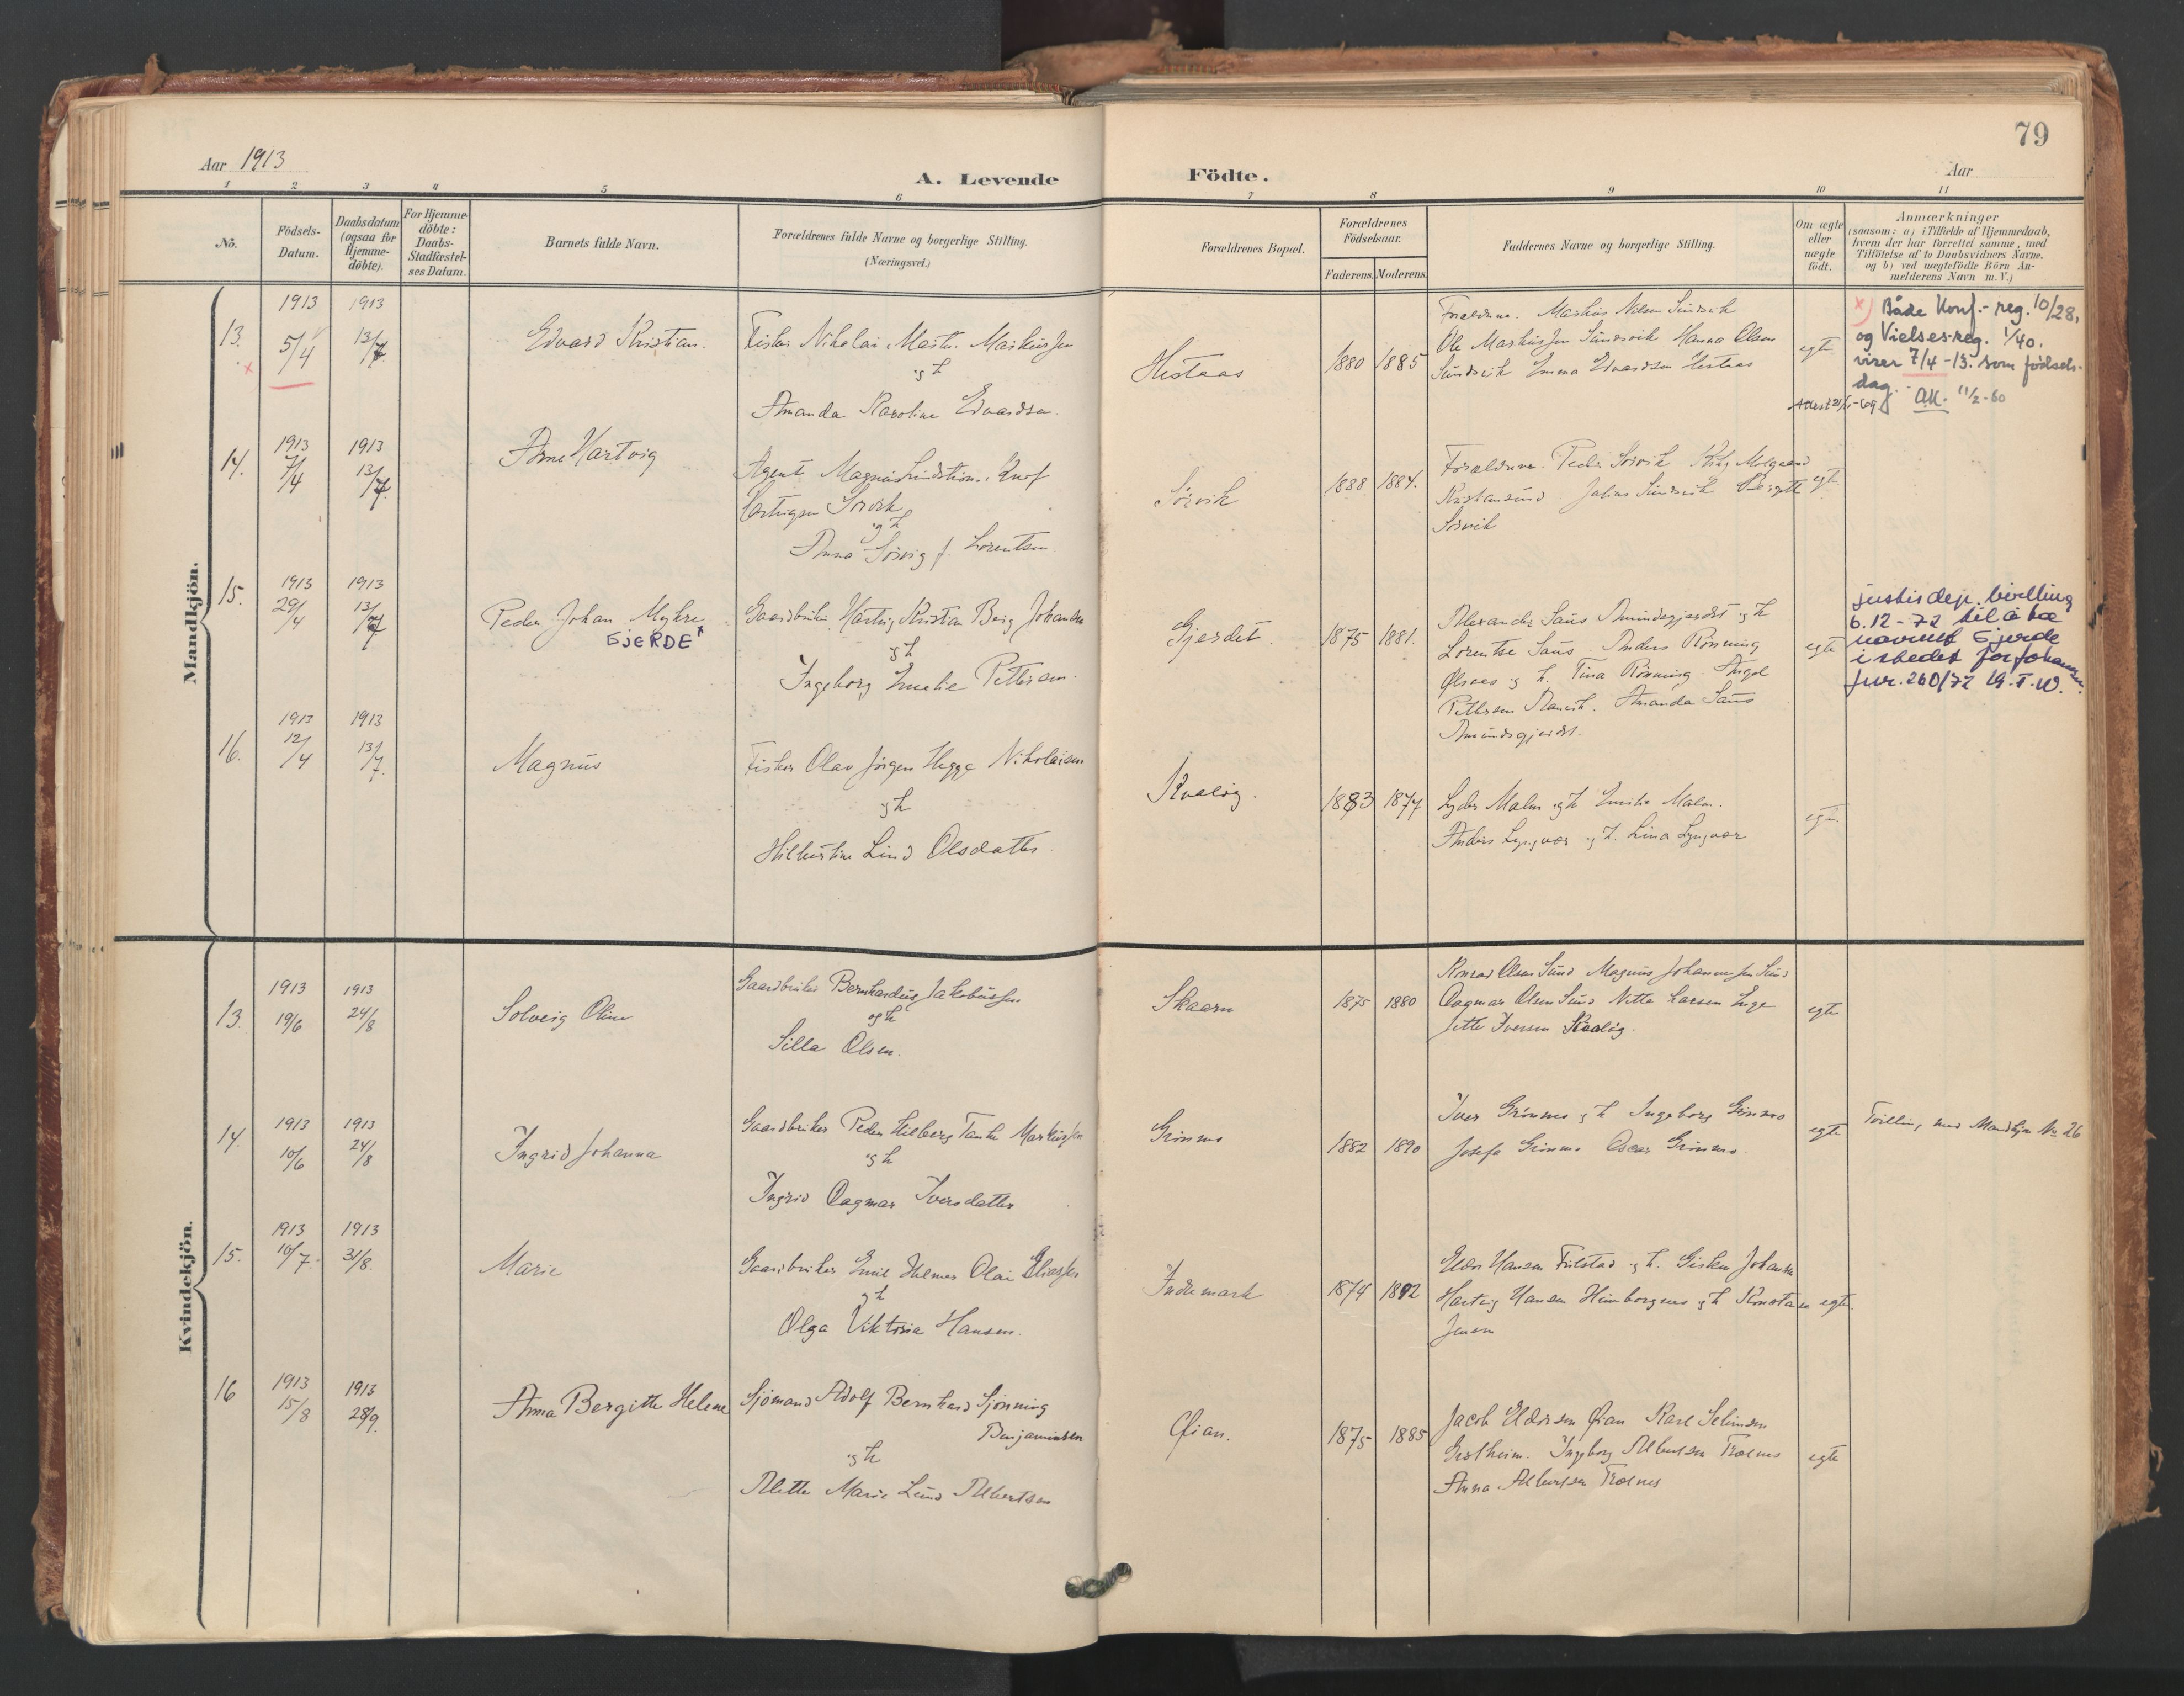 79
Aar 1913
A. Levende Födte.
Aar
1 2 3 4 5 6 7 8 9 10 11
No.
Födsels-
Datum.
Daabsdatum
(ogsaa for
Hjemme-
döbte).
For Hjemme-
döbte:
Daabs-
Stadfæstel-
ses Datum.
Barnets fulde Navn.
Forældrenes fulde Navne og borgerlige Stilling.
(Næringsvei.)
Forældrenes Bopæl.
Forældrenes
Födselsaar.
Faderens. Moderens.
Faddernes Navne og borgerlige Stilling.
Om ægte
eller
uægte
födt.
Anmærkninger
(saasom: a) i Tilfælde af Hjemmedaab,
hvem der har forrettet samme, med
Tilföielse af to Daabsvidners Navne.
og b) ved uægtefödte Börn An-
melderens Navn m. V.)
Mandkjön.
13.
1913
5/4
1913
13/7
Edvard Kristian.
Fisker Nikolai Martin Markussen
og h
Amanda Karoline Edvardsen.
Hestaas
1880 1885
Forældrene. Markus Nilsen Sundsvik
Ole Markussen Sundsvik Hanna Olsen
Sundsvik Emma Edvardsen Hestaas
egte
x) Både Konf.-reg. 10/28,
og Vielses-reg. 1/40.
viser 7/4-13. som fødsels-
dag.- AK. 11/2-60
14.
1913
7/4
1913
13/7.
Arne Hartvig
Agent Magnus Knof
Hartvigsen Sörvik
og h
Anna Sörvig f. Lorentsen.
Sörvik
1888 1884.
Forældrene. Peder Sörvik
Kristiansund. Julius Sundsvik
Sörvik
egte
15.
1913
29/4
1913
13/7
Peder Johan Myhre
GJERDE x
Gaardbruker Hartvig Kristian Berg Johansen
og h
Ingeborg Emelie Pettersen.
Gjerdet.
1875 1881.
Alexander Saus Amundsgjerdet og h
Lorentse Saus. Anders Rönning
Ølsaas og h. Tina Rönning.
Pettersen Amanda Saus
Amundsgjerdet.
egte
justisdep. bevilling
6.12-72 til å ta
navnet Gjerde
i stedet for Johansen
jnr. 260/72 G.T.W.
16.
1913
12/4
1913
13/7.
Magnus
Fisker Olav Jörgen Hegge Nikolaisen
og h
Hilbertine Lind Olsdatter
Kvalöy.
1883 1877
Lyder Malm og h Emilie Malm.
Anders Lyngvær og h. Lina Lyngvær
egte.
Kvindekjön.
13.
1913
19/6
1913
24/8
Solveig Oline
Gaardbruker Bernhardus Jakobussen
og h
Silla Olsen.
Skaarn
1875 1880
Konrad Olsen Sund Magnus Johannesen Sund
Dagmar Olsen Sund Nitte Larsen
Jette Iversen
egte
14.
1913
10/6
1913
24/8
Ingrid Johanna
Gaardbruker Peder Hilberg Tanke Markussen
og h
Ingrid Dagmar Iversdatter
Grönmo
1882 1890
Iver Grönmo og h Ingeborg Grönmo
Josefa Grönmo Oscar Grönmo
egte
Tvilling med Mandkjøn No 26
15.
1913
10/7.
1913
31/8.
Marie
Gaardbruker Emil Helmer Olai
og h
Olga Viktoria Hansen.
Indremark
1874 1892
Hansen og h. Gisken Johansen
Hartvig Hansen og h
Jensen
egte.
16
1913
15/8
1913
28/9.
Anna Bergitte Helene
Sjömand Adolf Bernhard Sjönning
Benjaminsen
og h
Alette Marie Lund Albertsen
Öian.
1875 1885
Jacob Öian Karl Selimsen
Ingeborg Albertsen Trælnes
Anna Albertsen Trælnes
egte